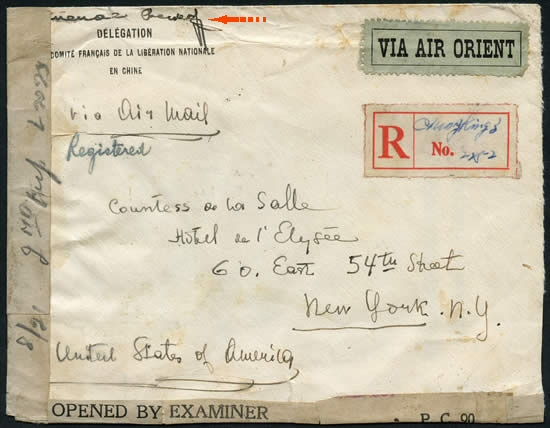 DÉLÉGATION
COMITÉ FRANÇAIS DE LA LIBÉRATION NATIONALE
EN CHINE
VIA AIR ORIENT
via Air Mail
Registered
R
No.
Countess de la Salle
Hôtel de l'Elysée
60. East 54th Street
New York. N.Y.
United States of America
OPENED BY EXAMINER
P.C. 90